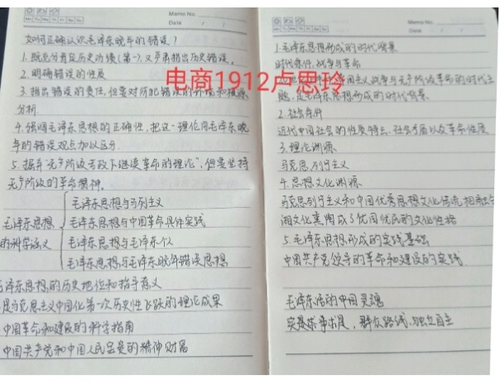 Memo No.
Date / /
如何正确认识毛泽东晚年的错误？
1. 既充分肯定历史功绩(第一)又矛盾指出历史错误。
2. 明确错误的性质
3. 指出错误的责任,但要对所犯错误的
分析
4. 强调毛泽东思想的正确性,把这一理论同毛泽东晚
年的错误观点加以区分。
5. 摒弃“无产阶级专政下继续革命的理论”,但要坚持
无产阶级的革命精神。
毛泽东思想
的科学涵义
毛泽东思想与马列主义
毛泽东思想与中国革命具体实践
毛泽东思想与毛泽东个人
毛泽东思想与毛泽东晚年错误思想
毛泽东思想的历史地位和指导意义
是马克思主义中国化第一次历史性飞跃的理论成果
中国革命和建设的科学指南
中国共产党和中国人民宝贵的精神财富
电商1912卢思玲
Memo No.
Date / /
1. 毛泽东思想形成的时代背景
时代主题,战争与革命
主义战争与无产阶级革命的时代主
题,是毛泽东思想形成的时代背景
2. 社会条件
近代中国社会的性质特点、社会矛盾以及革命性质
3. 理论渊源
马克思列宁主义
4. 思想文化渊源
马克思列宁主义和中国优秀思想文化传统相结合
湖文化其构成了忧国忧民的文化性格
5. 毛泽东思想形成的实践基础
中国共产党领导的革命和建设的实践
毛泽东活的中国灵魂
实事求是,群众路线,独立自主